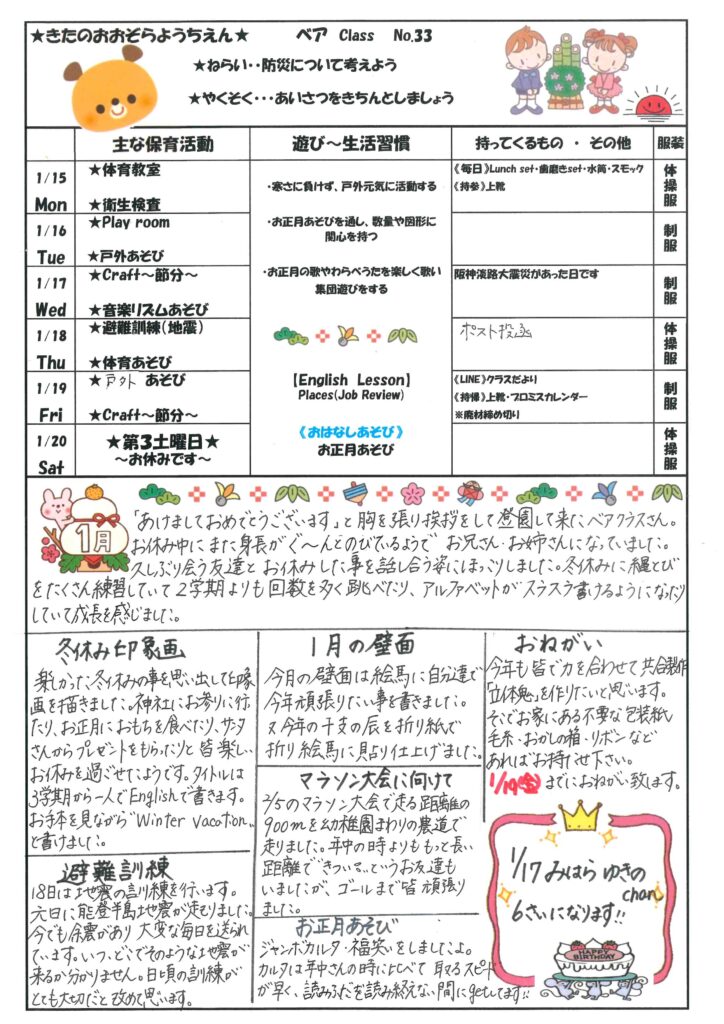 ★きたのおおぞらようちえん★　ベア Class No.33
★ねらい‥防災について考えよう
★やくそく・・・あいさつをきちんとしましょう
主な保育活動　遊び～生活習慣　持ってくるもの ・ その他　服装
1/15 Mon
★体育教室
★衛生検査
《毎日》Lunch set・歯磨きset・水筒・スモック
《持参》上靴
体操服
1/16 Tue
★Play room
★戸外あそび
制服
1/17 Wed
★Craft～節分～
★音楽リズムあそび
阪神淡路大震災があった日です
制服
1/18 Thu
★避難訓練(地震)
★体育あそび
ポスト投函
体操服
1/19 Fri
★戸外 あそび
★Craft～節分～
《LINE》クラスだより
《持帰》上靴・プロミスカレンダー
※廃材締め切り
制服
1/20 Sat
★第3土曜日★
～お休みです～
体操服
・寒さに負けず、戸外元気に活動する
・お正月あそびを通し、数量や図形に
関心を持つ
・お正月の歌やわらべうたを楽しく歌い
集団遊びをする
【English Lesson】
Places(Job Review)
《おはなしあそび》
お正月あそび
1月
「あけましておめでとうございます」と胸を張り挨拶をして登園して来たベアクラスさん。
お休み中にまた身長がぐ～んとのびているようで お兄さん・お姉さんになっていました。
久しぶり会う友達と お休みした事を話し合う姿にほっこりしました。冬休みに縄とび
をたくさん練習していて2学期よりも回数を多く跳べたり、アルファベットがスラスラ書けるようになったり
していて成長を感じました。
冬休み印象画
楽しかった冬休みの事を思い出して印象
画を描きました。神社にお参りに行っ
たり、お正月におもちを食べたり、サンタ
さんからプレゼントをもらったりと皆楽しい
お休みを過ごせてようです。タイトルは
3学期から一人でEnglishで書きます。
お手本を見ながら"Winter vacation"
と書けました。
避難訓練
18日は地震の訓練を行います。
元日に能登半島地震が起こりました。
今でも余震があり 大変な毎日を送られ
ています。いつ、どこでそのような地震が
来るか分かりません。日頃の訓練が
とても大切だと改めて思います。
1月の壁面
今月の壁面は絵馬に自分達で
今年頑張りたい事を書きました。
又今年の干支の辰を折り紙で
折り絵馬に貼り仕上げました。
マラソン大会に向けて
2/5のマラソン大会で走る距離の
900mを幼稚園まわりの農道で
走りました。年中の時よりももっと長い
距離で"きつい…というお友達も
いましたが、ゴールまで皆頑張り
ました。
お正月あそび
ジャンボカルタ・福笑いをしましたよ。
カルタは年中さんの時に比べて 取るスピード
が早く、読みふだを読み終えない間にgetしてます!!
おねがい
今年も皆で力を合わせて共合製作
「立体鬼」を作りたいと思います。
そこでお家にある不要な包装紙
毛糸・おかしの箱・リボンなど
あればお持たせ下さい。
1/19(金)までにおねがい致します。
1/17 みはら ゆきの
chan
6さいになります!!
HAPPY BIRTHDAY